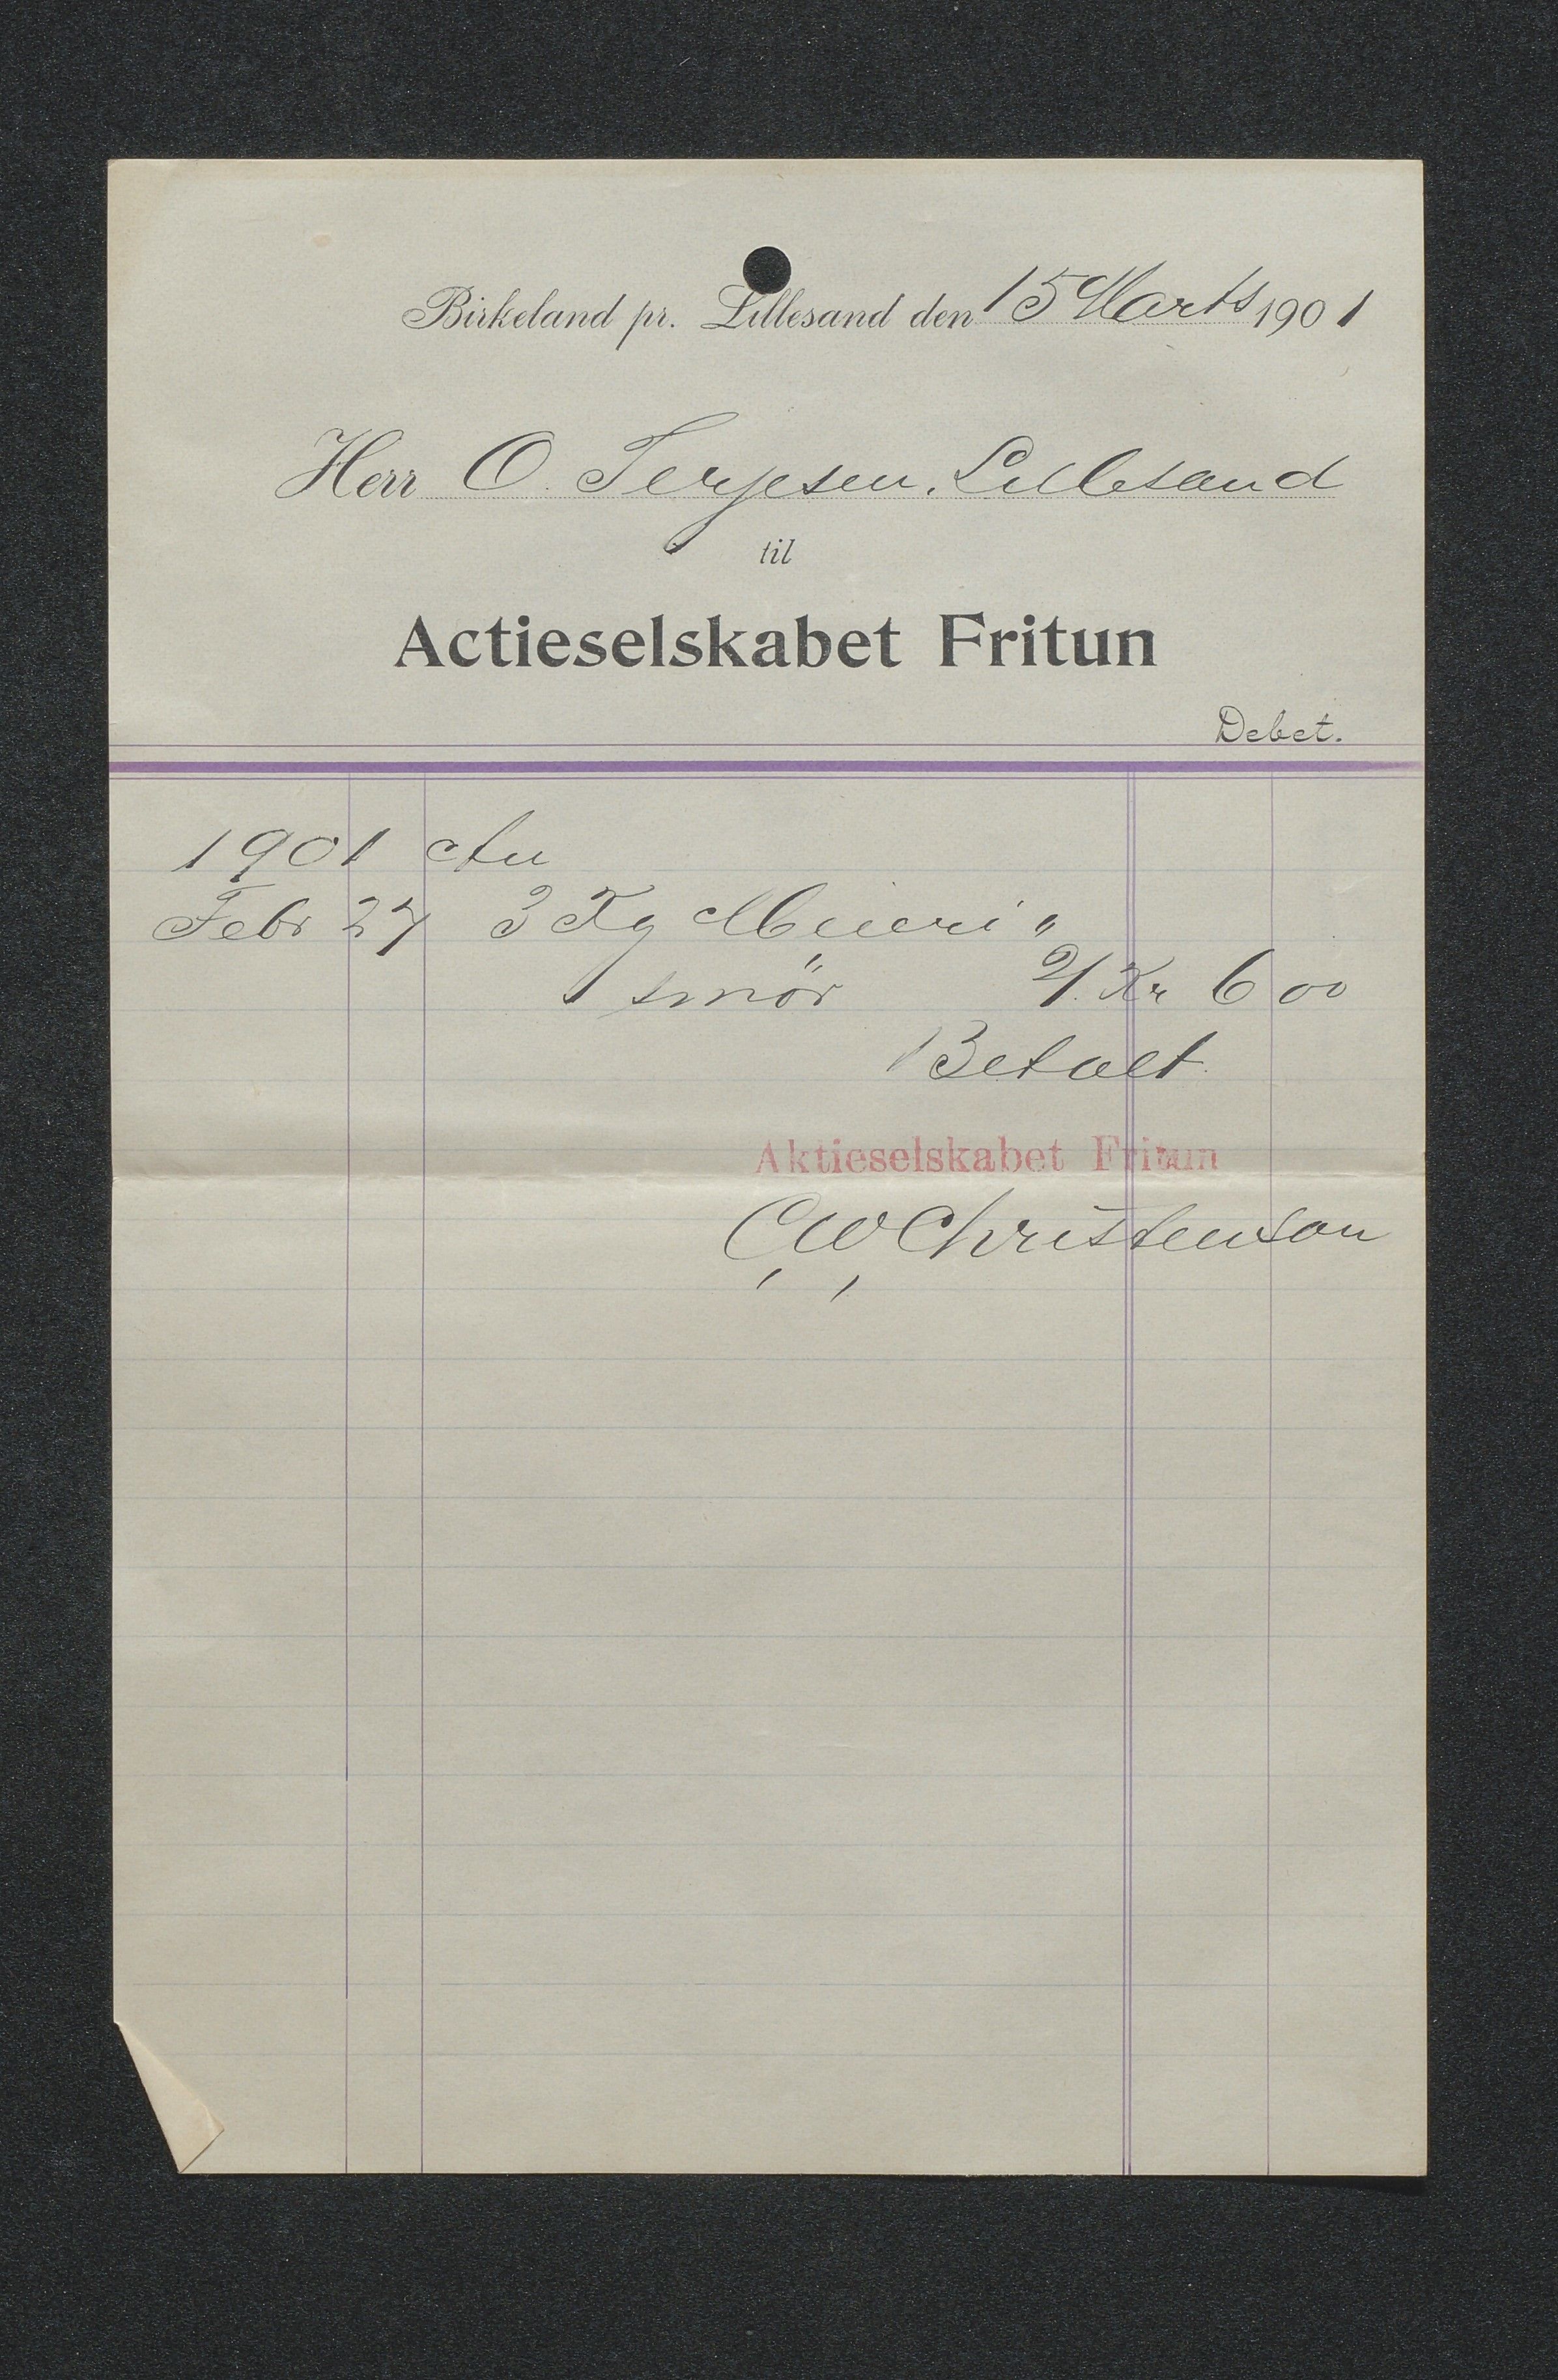 Birkeland pr. Lillesand den 15 Marts 1901
Herr O. Terjesen. Lillesand
til
Actieselskabet Fritun
Debet.
1901 An
Febr 27 3 Kg Meieri "
" smör 2/. Kr 6 00
Betalt
Aktieselskabet Fritun
C. W. Christenson